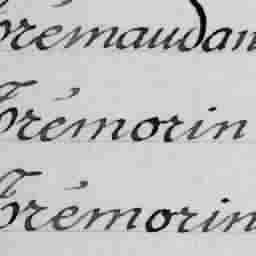 Trémaudan
Trémorin
Trémorin